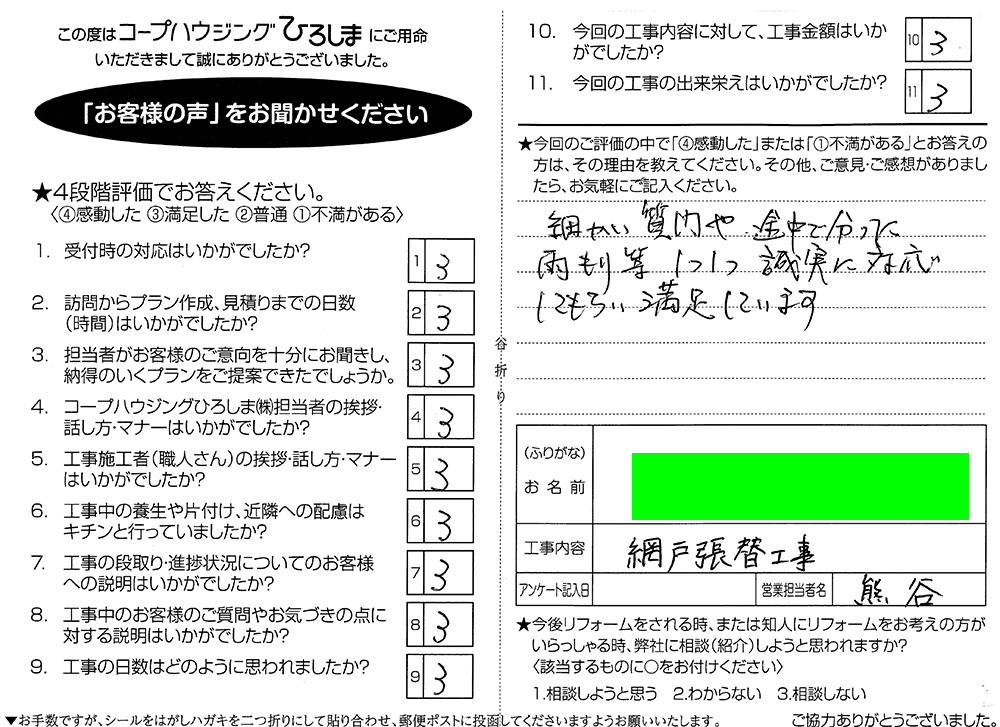 この度はコープハウジングひろしまにご用命
いただきまして誠にありがとうございました。
「お客様の声」をお聞かせください
★4段階評価でお答えください。
〈④感動した ③満足した ②普通 ①不満がある〉
1. 受付時の対応はいかがでしたか?
1 3
2. 訪問からプラン作成、見積りまでの日数
(時間)はいかがでしたか?
2 3
3. 担当者がお客様のご意向を十分にお聞きし、
納得のいくプランをご提案できたでしょうか。
3 3
4. コープハウジングひろしま㈱担当者の挨拶・
話し方・マナーはいかがでしたか?
4 3
5. 工事施工者(職人さん)の挨拶・話し方・マナー
はいかがでしたか?
5 3
6. 工事中の養生や片付け、近隣への配慮は
キチンと行っていましたか?
6 3
7. 工事の段取り・進捗状況についてのお客様
への説明はいかがでしたか?
7 3
8. 工事中のお客様のご質問やお気づきの点に
対する説明はいかがでしたか?
8 3
9. 工事の日数はどのように思われましたか?
9 3
▼お手数ですが、シールをはがしハガキを二つ折りにして貼り合わせ、郵便ポストに投函してくださいますようお願いいたします。
谷折り
10. 今回の工事内容に対して、工事金額はいか
がでしたか?
10 3
11. 今回の工事の出来栄えはいかがでしたか?
11 3
★今回のご評価の中で「④感動した」または「①不満がある」とお答えの
方は、その理由を教えてください。その他、ご意見・ご感想がありまし
たら、お気軽にご記入ください。
細かい質内や途中で分った
雨もり等1つ1つ誠実に対応
してもらい満足しています
(ふりがな)
お名前
工事内容 網戸張替工事
アンケート記入日 営業担当者名 熊谷
★今後リフォームをされる時、または知人にリフォームをお考えの方が
いらっしゃる時、弊社に相談(紹介)しようと思われますか?
〈該当するものに○をお付けください〉
1.相談しようと思う 2.わからない 3.相談しない
ご協力ありがとうございました。